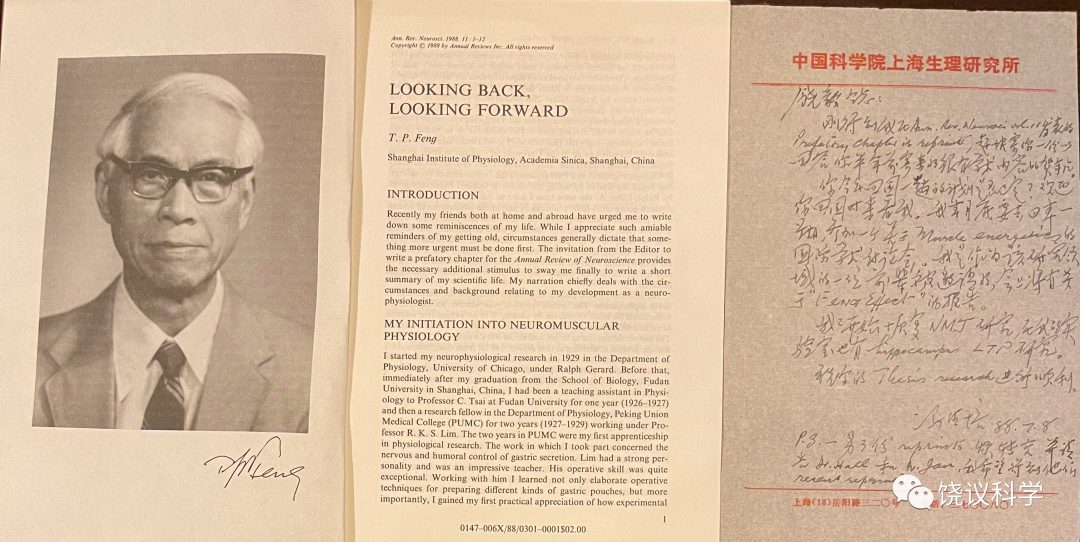 T P Feng
Ann. Rev. Neurosci. 1988. 11:1–12
Copyright © 1988 by Annual Reviews Inc. All rights reserved
LOOKING BACK,
LOOKING FORWARD
T. P. Feng
Shanghai Institute of Physiology, Academia Sinica, Shanghai, China
INTRODUCTION
Recently my friends both at home and abroad have urged me to write
down some reminiscences of my life. While I appreciate such amiable
reminders of my getting old, circumstances generally dictate that some-
thing more urgent must be done first. The invitation from the Editor to
write a prefatory chapter for the Annual Review of Neuroscience provides
the necessary additional stimulus to sway me finally to write a short
summary of my scientific life. My narration chiefly deals with the cir-
cumstances and background relating to my development as a neuro-
physiologist.
MY INITIATION INTO NEUROMUSCULAR
PHYSIOLOGY
I started my neurophysiological research in 1929 in the Department of
Physiology, University of Chicago, under Ralph Gerard. Before that,
immediately after my graduation from the School of Biology, Fudan
University in Shanghai, China, I had been a teaching assistant in Physi-
ology to Professor C. Tsai at Fudan University for one year (1926–1927)
and then a research fellow in the Department of Physiology, Peking Union
Medical College (PUMC) for two years (1927–1929) working under Pro-
fessor R. K. S. Lim. The two years in PUMC were my first apprenticeship
in physiological research. The work in which I took part concerned the
nervous and humoral control of gastric secretion. Lim had a strong per-
sonality and was an impressive teacher. His operative skill was quite
exceptional. Working with him I learned not only elaborate operative
techniques for preparing different kinds of gastric pouches, but more
importantly, I gained my first practical appreciation of how experimental
1
0147–006X/88/0301–0001$02.00
中国科学院上海生理研究所
饶毅同志:
刚得到我在 Ann. Rev. Neurosci vol. 11
Prefatory chapter reprint
你回国时来看我。我本月底要去
Muscle energetics 的
国际学术讨论会。
"Feng Effect" 的报告。
NMJ 研究,在我实
验室也有 hippocampus LTP 研究。
祝你的 Thesis research 进行顺利
冯德培 88.7.8
P.S. reprints
Dr. Hall Dr. Jan
recent reprints
上海(18)岳阳路三二〇号
饶议科学